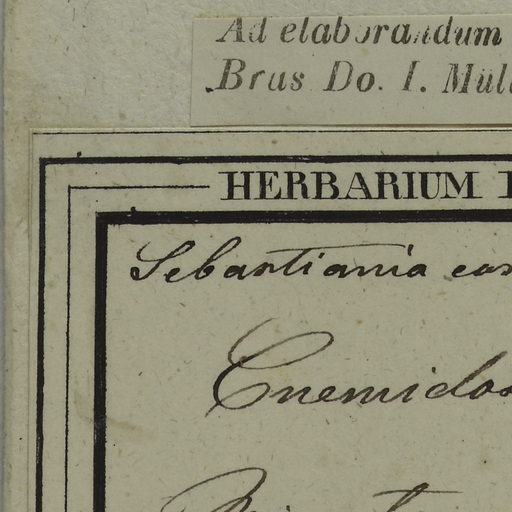 Ad elaborandum
Bras Do. I. Müll
HERBARIUM
Sebastiania cor
Cnemidos